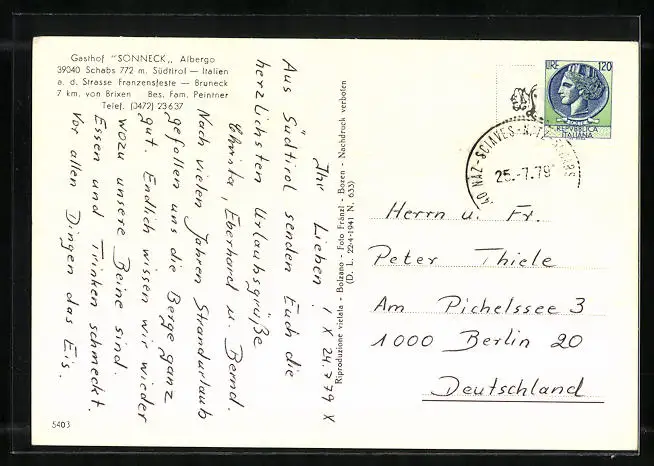 Gasthof "SONNECK„ Albergo
39040 Schabs 772 m. Südtirol — Italien
a. d. Strasse Franzensfeste — Bruneck
7 km. von Brixen Bes. Fam. Peintner
Telef. (0472) 23637
Ihr Lieben! 1 X 24.7.79 X
Aus Südtirol senden Euch die
herzlichsten Urlaubsgrüße
Christa, Eberhard u. Bernd.
Nach vielen Jahren Strandurlaub
gefallen uns die Berge ganz
gut. Endlich wissen wir wieder
wozu unsere Beine sind.
Essen und Trinken schmeckt.
Vor allen Dingen das Eis.
5403
Riproduzione vietata - Bolzano - Foto Fränzl - Bozen - Nachdruck verboten
(D. L. 22-4-1941 N. 633)
LIRE 120
REPVBBLICA
ITALIANA
NAZ-SCIAVES
25.-7.79
Herrn u. Fr.
Peter Thiele
Am Pichelssee 3
1000 Berlin 20
Deutschland